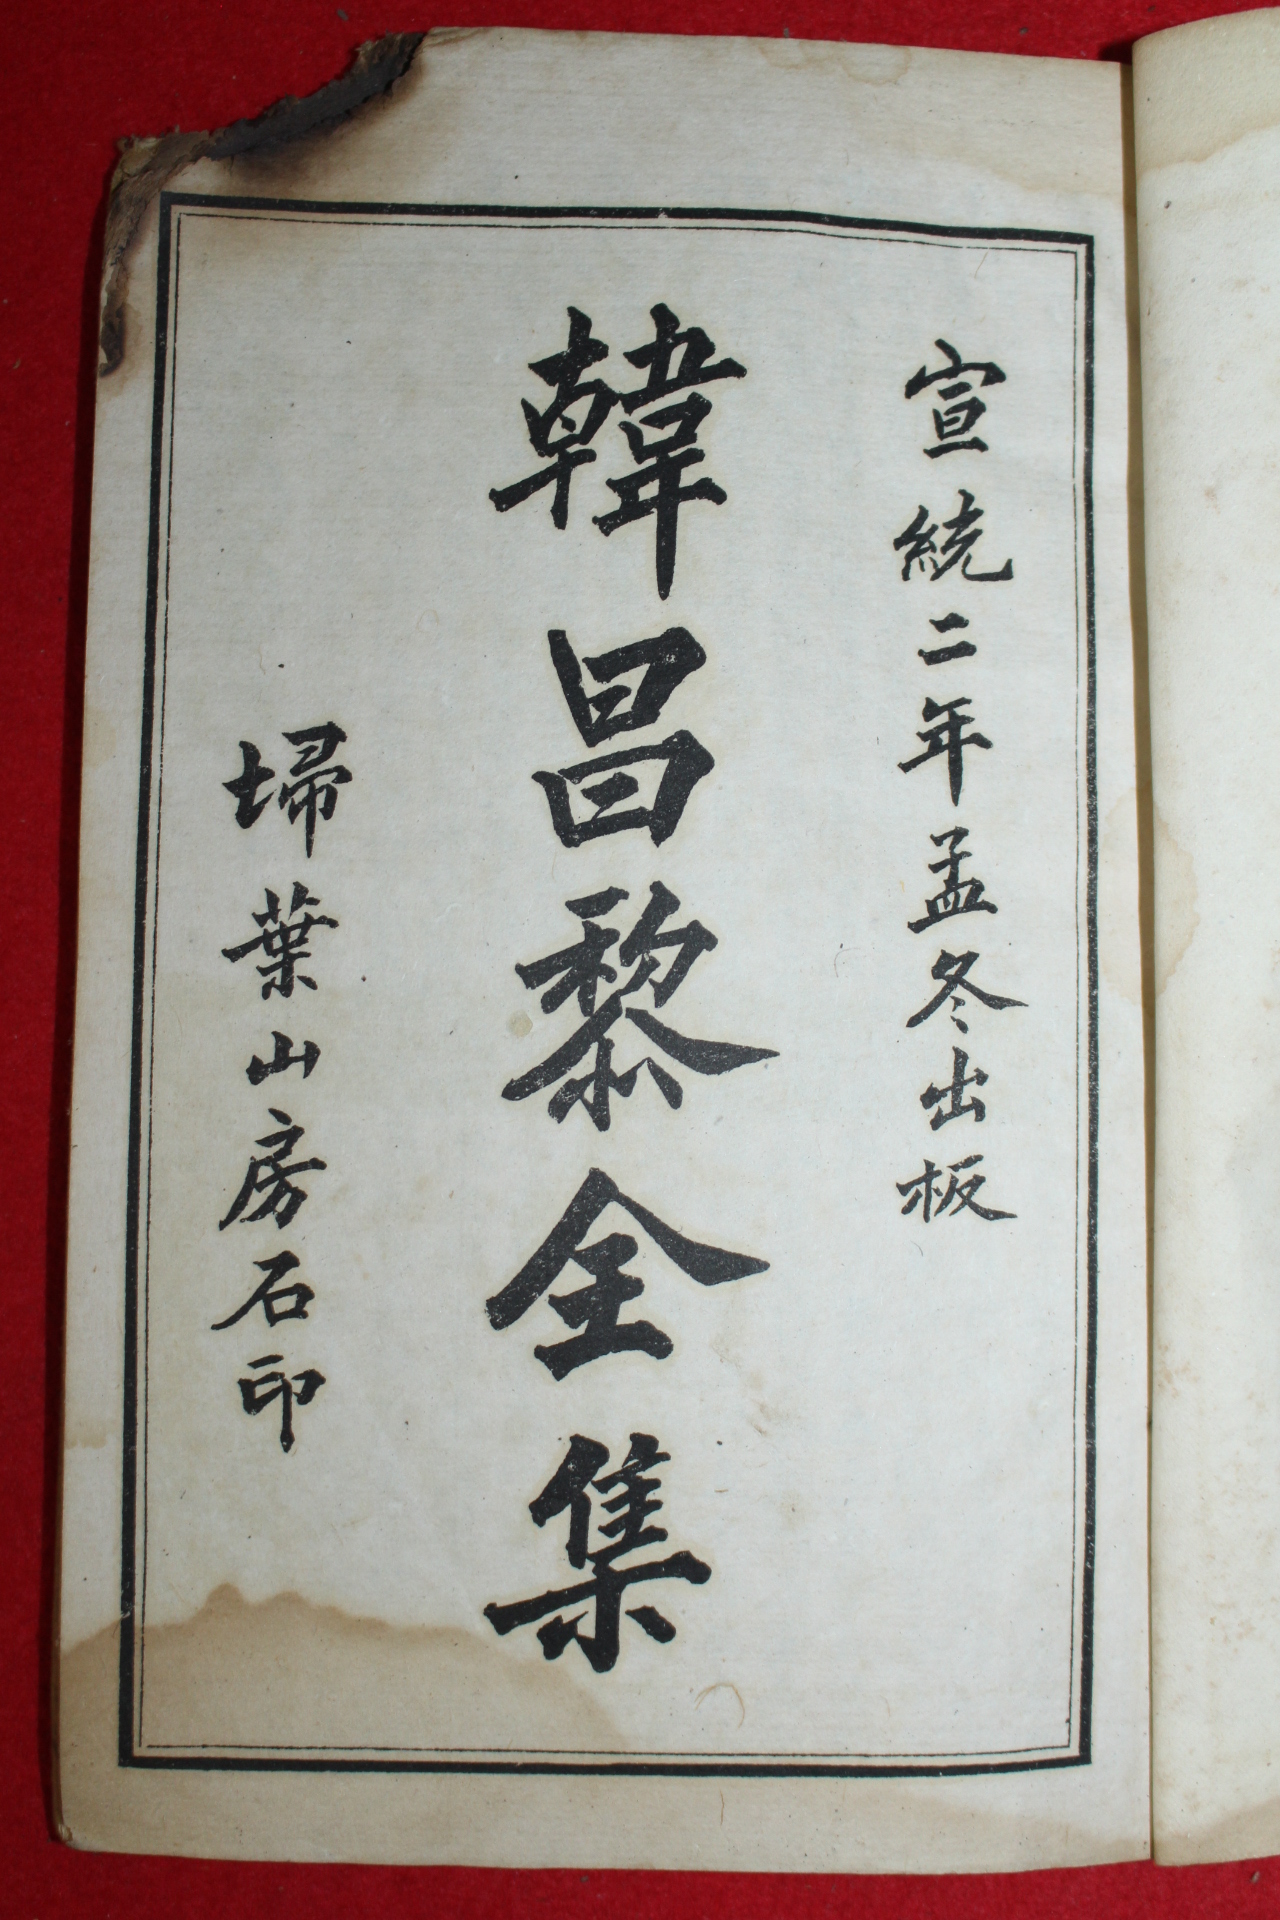 宣統二年孟冬出板
韓昌黎全集
埽葉山房石印